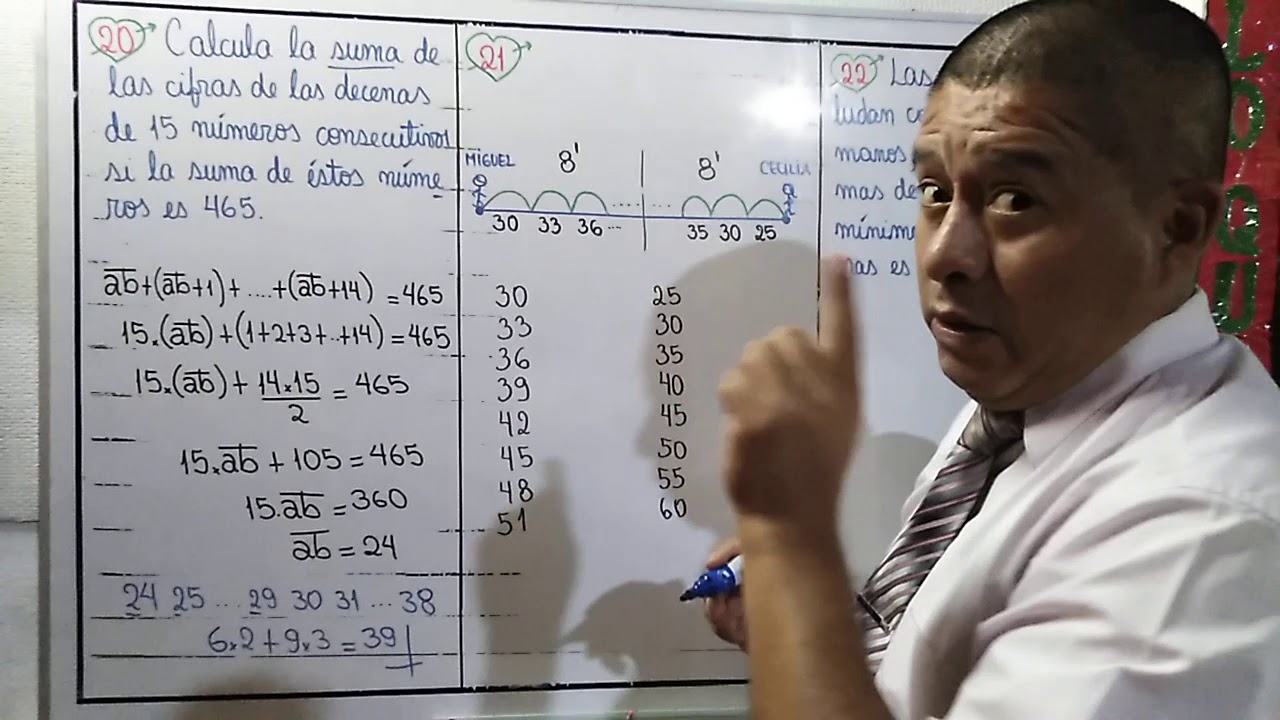 20 Calcula la suma de
las cifras de las decenas
de 15 números consecutivos
si la suma de éstos núme
ros es 465.
ab+(ab+1)+....+(ab+14)=465
15×(ab)+(1+2+3+..+14)=465
15×(ab)+14×15/2=465
15×ab+105=465
15.ab=360
ab=24
24 25 ... 29 30 31 ... 38
6×2+9×3=39
21
MIGUEL 8' 8' CECILIA
30 33 36 ... 35 30 25
30 25
33 30
36 35
39 40
42 45
45 50
48 55
51 60
22 Las
ludan
manos
mas de
as es
L
O
Q
U